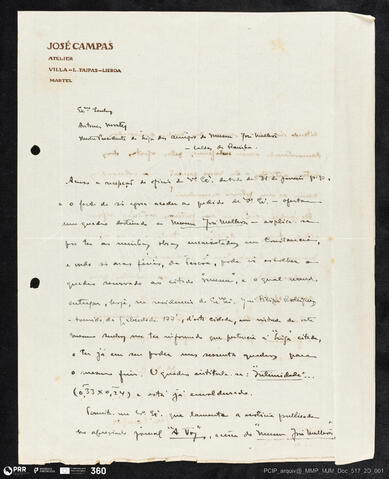 JOSÉ CAMPAS
ATELIER
VILLA-L. TAIPAS-LISBOA
MARTEL
Exmo Senhor
Antonio Montez
Muito Presidente da Liga dos Amigos do Museu José Malhoa
Caldas da Rainha
Acuso a recepção do oficio de Va Exa, datado de 31 de Janeiro p.p.
e o facto de só agora aceder ao pedido de Va Exa - ofertar
um quadro destinado ao Museu José Malhoa - explica-se
por ter as minhas obras encaixotadas em Constancia,
e onde só nas férias, da Pascoa, pude ir escolher o
quadro reservado ao citado "museu", e o qual mandei
entregar, hoje, na residencia do Exmo Sr. Filipe Rodrigues
- Avenida da Liberdade 177, d'esta cidade, em virtude de este
mesmo senhor me ter informado que pertencia á "Liga" citada,
e ter já em seu poder uns sessenta quadros para
o mesmo fim. O quadro intitula-se: "Intimidade"...
(0,33 x 0,24) e está já emoldurado.
Permita-me Va Exa que lamente a noticia publicada
no apreciado jornal "A Voz", acerca do "Museu José Malhoa"
PRR
360
PCIP_arquiv@_MMP_MJM_Doc_517_2O_001